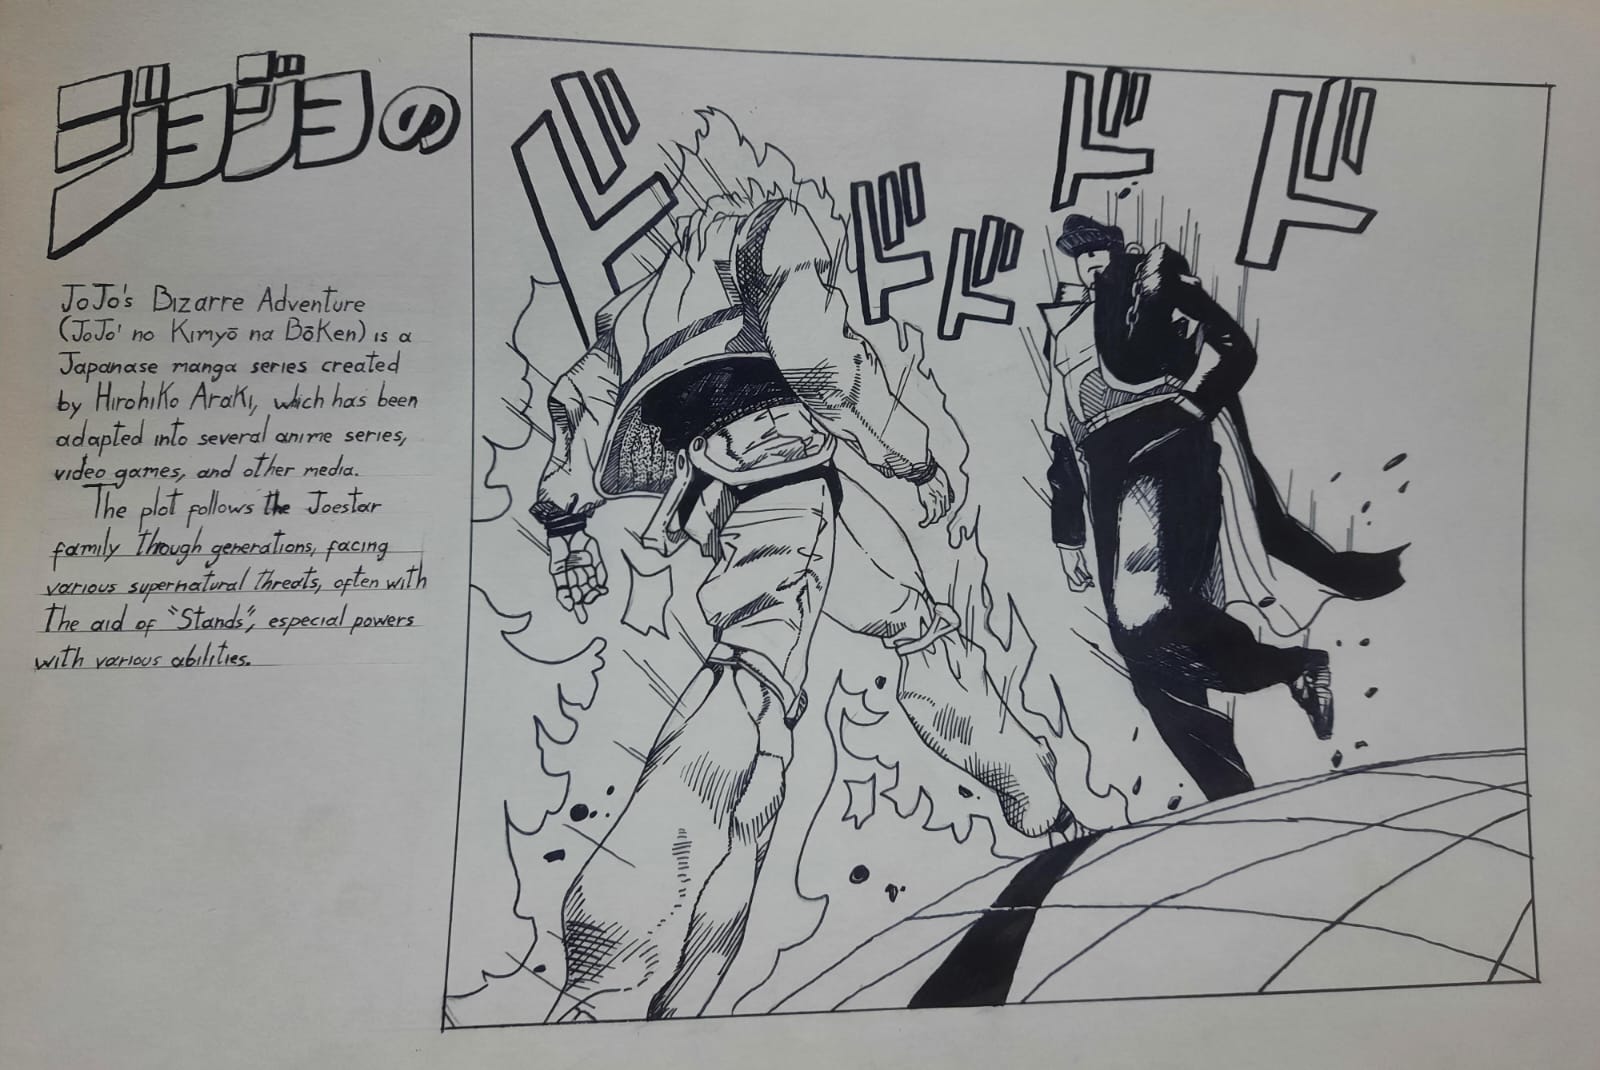 ジョジョの
JoJo's Bizarre Adventure
(JoJo' no Kimyō na Bōken) is a
Japanese manga series created
by Hirohiko Araki, wich has been
adapted into several anime series,
video games, and other media.
The plot follows the Joestar
family through generations, facing
various supernatural threats, often with
the aid of "Stands", especial powers
with various abilities.
ド
ド
ド
ド
ド